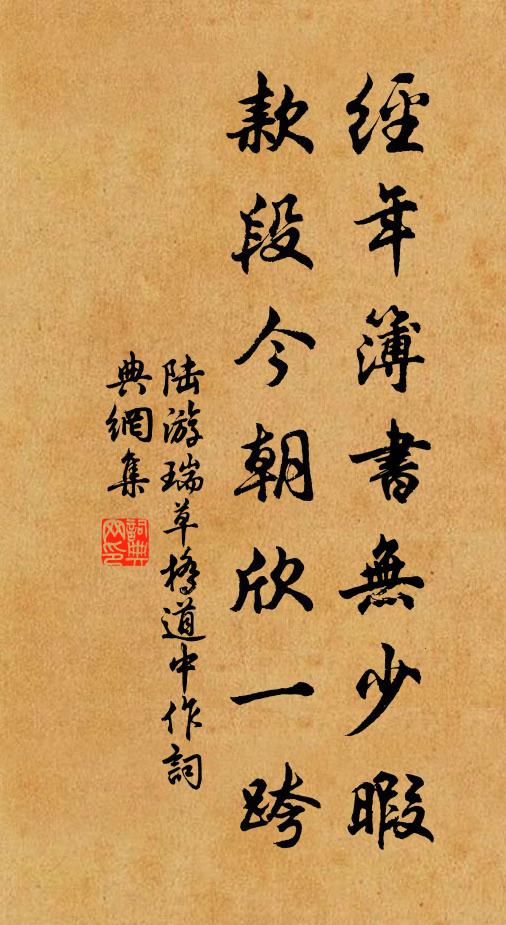 經年簿書無少暇
款段今朝欣一跨
陆游瑞草橋道中作詞
典網集
詞典網印